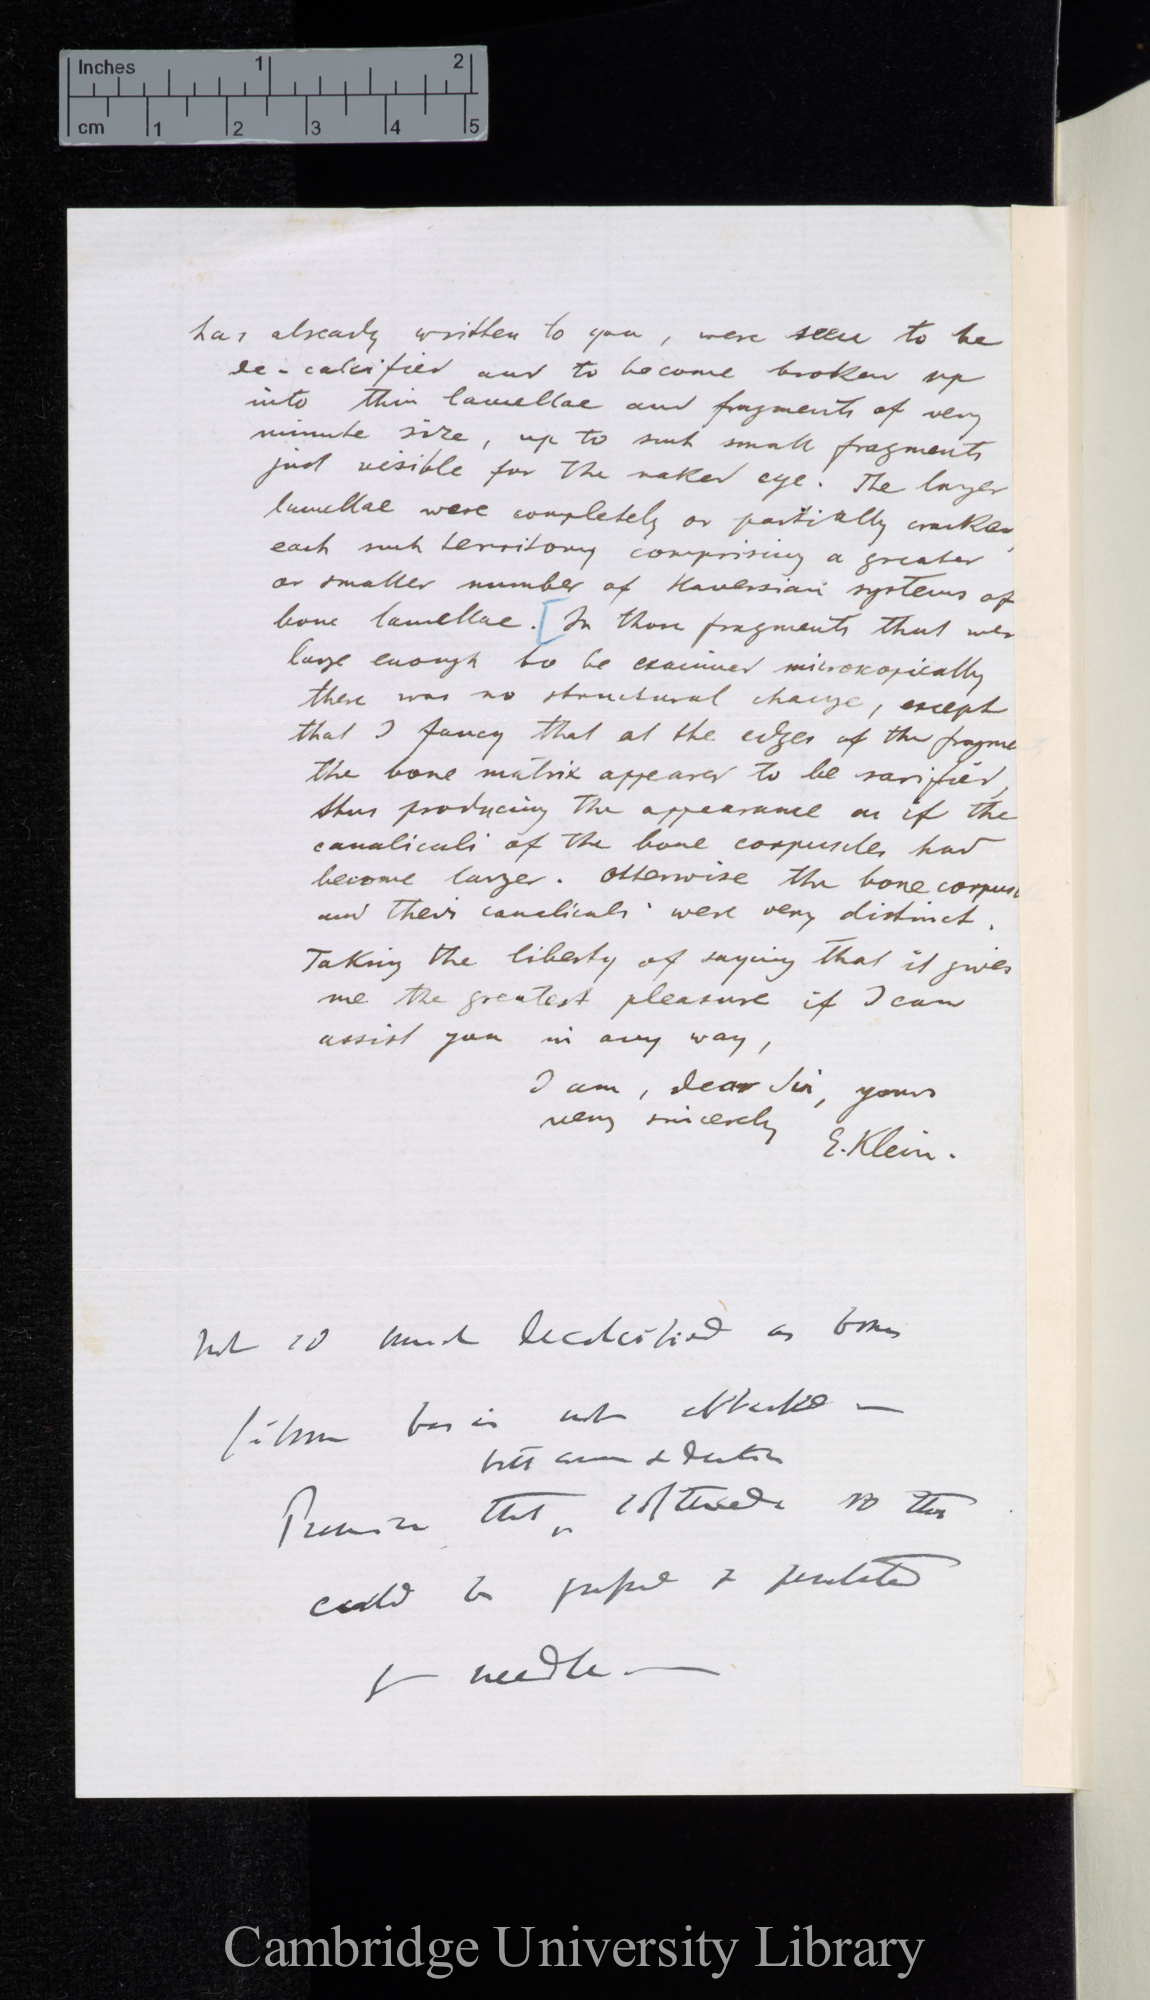 Inches 1 2
cm 1 2 3 4 5
has already written to you, were seen to be
de-calcified and to become broken up
into thin lamellae and fragments of very
minute size, up to such small fragments
just visible for the naked eye. The larger
lamellae were completely or partially cracked,
each such territory comprising a greater
or smaller number of Haversian systems of
bone lamellae. [In those fragments that wer
large enough to be examined microscopically
there was no structural change, except
that I fancy that at the edges of the fragme
the bone matrix appeared to be rarified,
thus producing the appearance as if the
canaliculi of the bone corpuscles had
become larger. Otherwise the bone corpusc
and their canaliculi were very distinct.
Taking the liberty of saying that it gives
me the greatest pleasure if I can
assist you in any way,
I am, dear Sir, yours
very sincerely
E. Klein.
not so much decalcified as bones
fibrous basis not attacked —
both enamel & dentine
Premise that softened so that
could be & penetrated
by needle —
Cambridge University Library